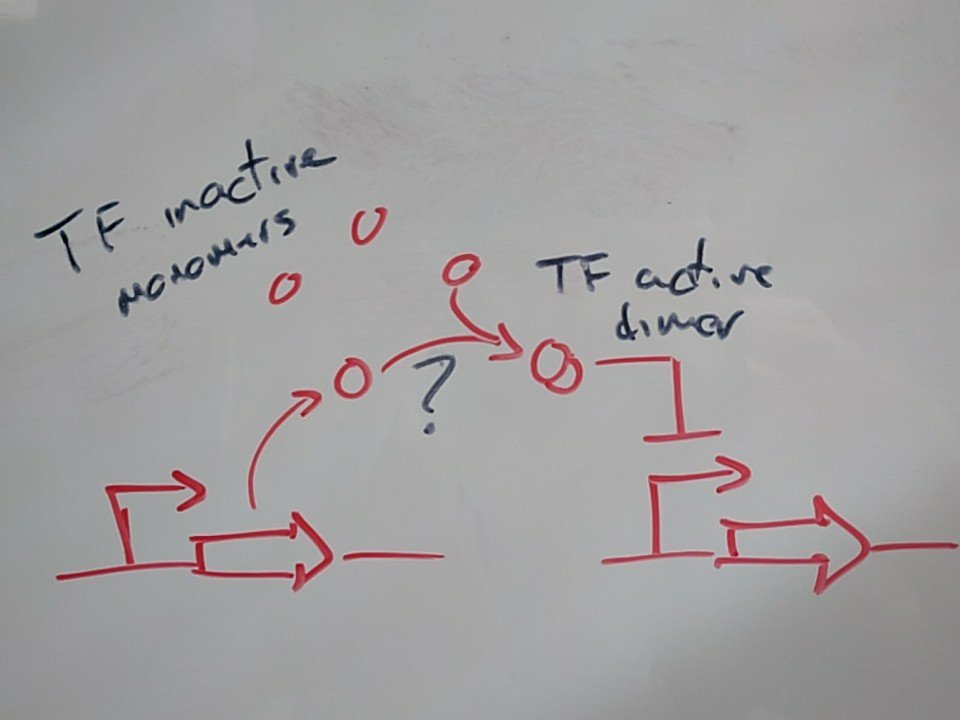 TF inactive
monomers
TF active
dimer
?